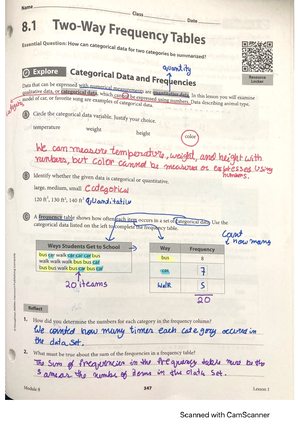 Name
Class
Date
8.1 Two-Way Frequency Tables
Essential Question: How can categorical data for two categories be summarized?
Resource Locker
quantity
Explore Categorical Data and Frequencies
Data that can be expressed with numerical measurements are quantitative data. In this lesson you will examine
qualitative data, or categorical data, which cannot be expressed using numbers. Data describing animal type,
model of car, or favorite song are examples of categorical data.
A Circle the categorical data variable. Justify your choice.
temperature weight height color
We can measure temperature, weight, and height with
numbers, but color cannot be measured or expressed using
numbers.
B Identify whether the given data is categorical or quantitative.
large, medium, small Categorical
120 ft², 130 ft², 140 ft² Quantitative
C A frequency table shows how often each item occurs in a set of categorical data. Use the
categorical data listed on the left to complete the frequency table.
Count
how many
Ways Students Get to School
bus car walk car car car bus
walk walk walk bus bus car
bus bus walk bus car bus car
20 items
Way Frequency
bus 8
car 7
walk 5
20
Reflect
1. How did you determine the numbers for each category in the frequency column?
We counted how many times each category occured in
the data set.
2. What must be true about the sum of the frequencies in a frequency table?
The sum of frequencies in the frequency table must be the
same as the number of items in the data set.
Module 8
347
Lesson 1
Scanned with CamScanner